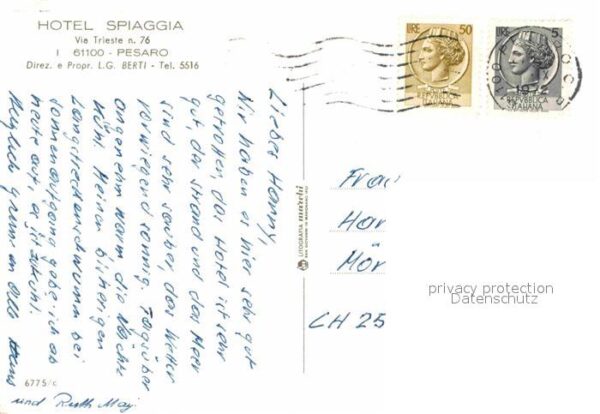 HOTEL SPIAGGIA
Via Trieste n. 76
I 61100 - PESARO
Direz. e Propr. L.G. BERTI - Tel. 5516
LIRE 50
REPUBBLICA
ITALIANA
LIRE 5
REPUBBLICA
ITALIANA
1972
Wir haben es hier sehr gut
getroffen, das Hotel ist sehr
gut, der Strand und das Meer
sind sehr sauber, das Wetter
vorwiegend sonnig. Tagsüber
angenehm warm die Nächte
kühl. Meinen bisherigen
Langstreckenschwumm bei
Sonnenaufgang gebe ich ab
heute auf, es ist zu kühl.
Herzlich grüssen Alle Hans
und Ruth May
LITOGRAFIA marchi
Frau
Har
Mör
CH 25
privacy protection
Datenschutz
6775/c